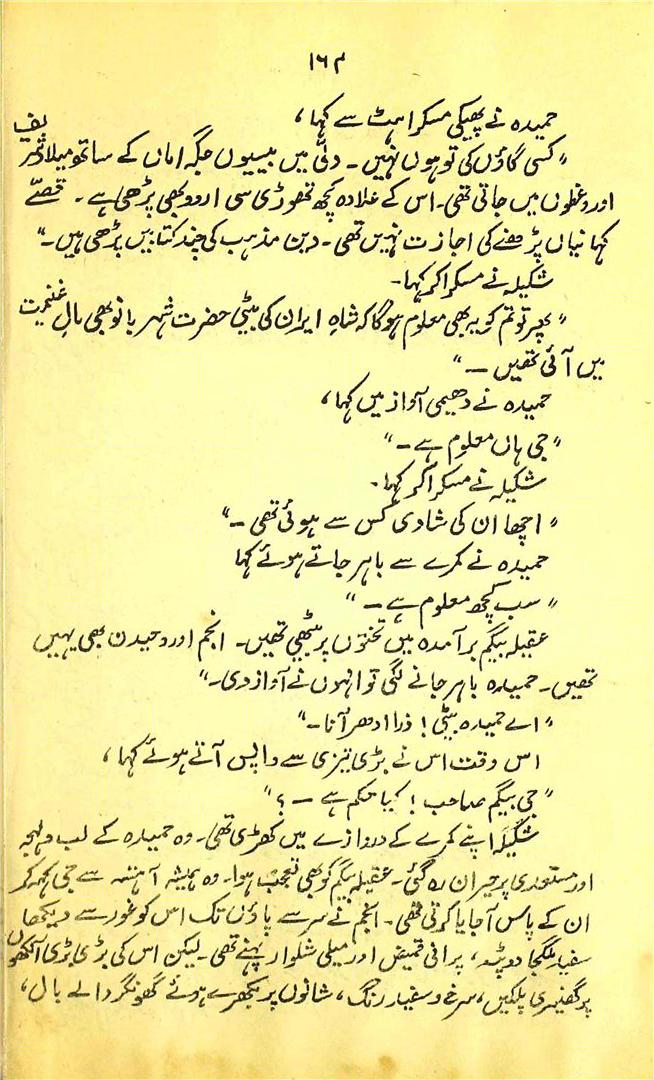 ۱۶۴
حمیدہ نے پھیکی مسکراہٹ سے کہا،
"کسی گاؤں کی تو ہوں نہیں۔ دلّی میں بیسیوں جگہ اماں کے ساتھ میلاد شریف
اور وعظوں میں جاتی تھی۔ اس کے علاوہ کچھ تھوڑی سی اردو بھی پڑھی ہے۔ قصّے
کہانیاں پڑھنے کی اجازت نہیں تھی۔ دین مذہب کی چند کتابیں پڑھی ہیں۔"
شکیلہ نے مسکرا کر کہا۔
"پھر تو تم کو یہ بھی معلوم ہوگا کہ شاہِ ایران کی بیٹی حضرت شہر بانو بھی مالِ غنیمت
میں آئی تھیں۔"
حمیدہ نے دھیمی آواز میں کہا،
"جی ہاں معلوم ہے۔"
شکیلہ نے مسکرا کر کہا۔
"اچھا ان کی شادی کس سے ہوئی تھی۔"
حمیدہ نے کمرے سے باہر جاتے ہوئے کہا
"سب کچھ معلوم ہے۔"
عقیلہ بیگم برآمدہ میں تختوں پر بیٹھی تھیں۔ انجم اور وحیدن بھی یہیں
تھیں۔ حمیدہ باہر جانے لگی تو انہوں نے آواز دی۔"
"اے حمیدہ بیٹی! ذرا ادھر آنا۔"
اس وقت اس نے بڑی تیزی سے واپس آتے ہوئے کہا،
"جی بیگم صاحب! کیا حکم ہے۔؟"
شکیلہ اپنے کمرے کے دروازے میں کھڑی تھی۔ وہ حمیدہ کے لب و لہجہ
اور مستعدی پر حیران رہ گئی۔ عقیلہ بیگم کو بھی تعجب ہوا۔ وہ ہمیشہ آہستہ سے جی کہہ کر
ان کے پاس آ جایا کرتی تھی۔ انجم نے سر سے پاؤں تک اس کو غور سے دیکھا
سفید ملگجا دوپٹہ، پرانی قمیض اور میلی شلوار پہنے تھی۔ لیکن اس کی بڑی بڑی آنکھوں
پر گھنیری پلکیں، سرخ و سفید رنگ، شانوں پر بکھرے ہوئے گھونگر والے بال،